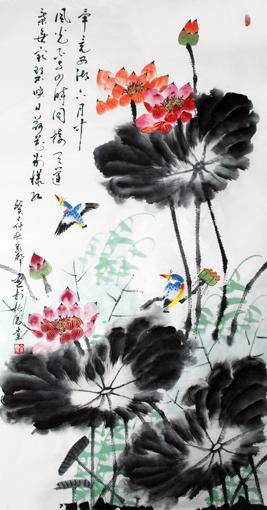 畢竟西湖六月中
風光不与四時同接天蓮
葉無窮碧映日荷花别樣紅
癸巳仲秋